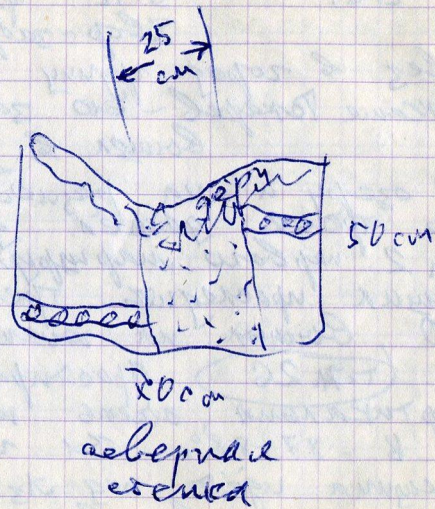 25
см
дёрн
50 см
70 см
северная
стенка